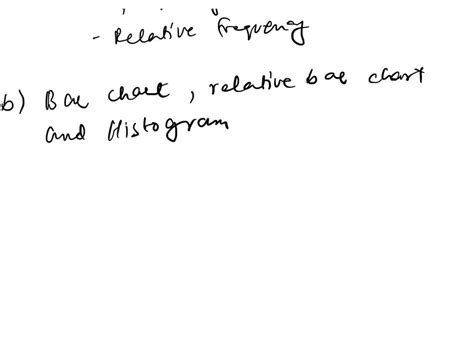 - Relative frequency
b) Bar chart, relative bar chart
and Histogram